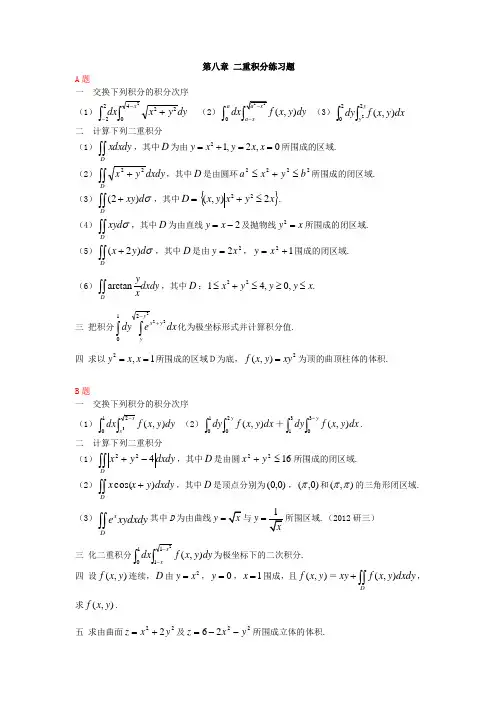 第八章 二重积分练习题
A题
一 交换下列积分的积分次序
（1）$\int_{-2}^{2}dx\int_{0}^{\sqrt{4-x^2}}\sqrt{x^2+y^2}dy$ （2）$\int_{0}^{a}dx\int_{a-x}^{\sqrt{a^2-x^2}}f(x,y)dy$ （3）$\int_{0}^{2}dy\int_{y^2}^{2y}f(x,y)dx$
二 计算下列二重积分
（1）$\iint_D xdxdy$，其中$D$为由$y=x^2+1,y=2x,x=0$所围成的区域.
（2）$\iint_D\sqrt{x^2+y^2}dxdy$，其中$D$是由圆环$a^2\le x^2+y^2\le b^2$所围成的闭区域.
（3）$\iint_D(2+xy)d\sigma$，其中$D=\{(x,y)|x^2+y^2\le 2x\}$.
（4）$\iint_D xyd\sigma$，其中$D$为由直线$y=x-2$及抛物线$y^2=x$所围成的闭区域.
（5）$\iint_D(x+2y)d\sigma$，其中$D$是由$y=2x^2$，$y=x^2+1$围成的闭区域.
（6）$\iint_D\arctan\frac{y}{x}dxdy$，其中$D$：$1\le x^2+y^2\le 4,y\ge 0,y\le x.$
三 把积分$\int_0^1 dy\int_y^{\sqrt{2-y^2}}e^{x^2+y^2}dx$化为极坐标形式并计算积分值.
四 求以$y^2=x,x=1$所围成的区域D为底，$f(x,y)=xy^2$为顶的曲顶柱体的体积.
B题
一 交换下列积分的积分次序
（1）$\int_0^1dx\int_{x^2}^{2-x}f(x,y)dy$ （2）$\int_0^1dy\int_0^{2y}f(x,y)dx+\int_1^3dy\int_0^{3-y}f(x,y)dx$.
二 计算下列二重积分
（1）$\iint_D|x^2+y^2-4|dxdy$，其中$D$是由圆$x^2+y^2\le 16$所围成的闭区域.
（2）$\iint_D x\cos(x+y)dxdy$，其中$D$是顶点分别为$(0,0)$，$(\pi,0)$和$(\pi,\pi)$的三角形闭区域.
（3）$\iint_D e^xxydxdy$其中D为由曲线$y=\sqrt{x}$与$y=\frac{1}{\sqrt{x}}$所围区域.（2012研三）
三 化二重积分$\int_0^1dx\int_{1-x}^{\sqrt{1-x^2}}f(x,y)dy$为极坐标下的二次积分.
四 设$f(x,y)$连续，$D$由$y=x^2$，$y=0$，$x=1$围成，且$f(x,y)=xy+\iint_D f(x,y)dxdy$，
求$f(x,y)$.
五 求由曲面$z=x^2+2y^2$及$z=6-2x^2-y^2$所围成立体的体积.